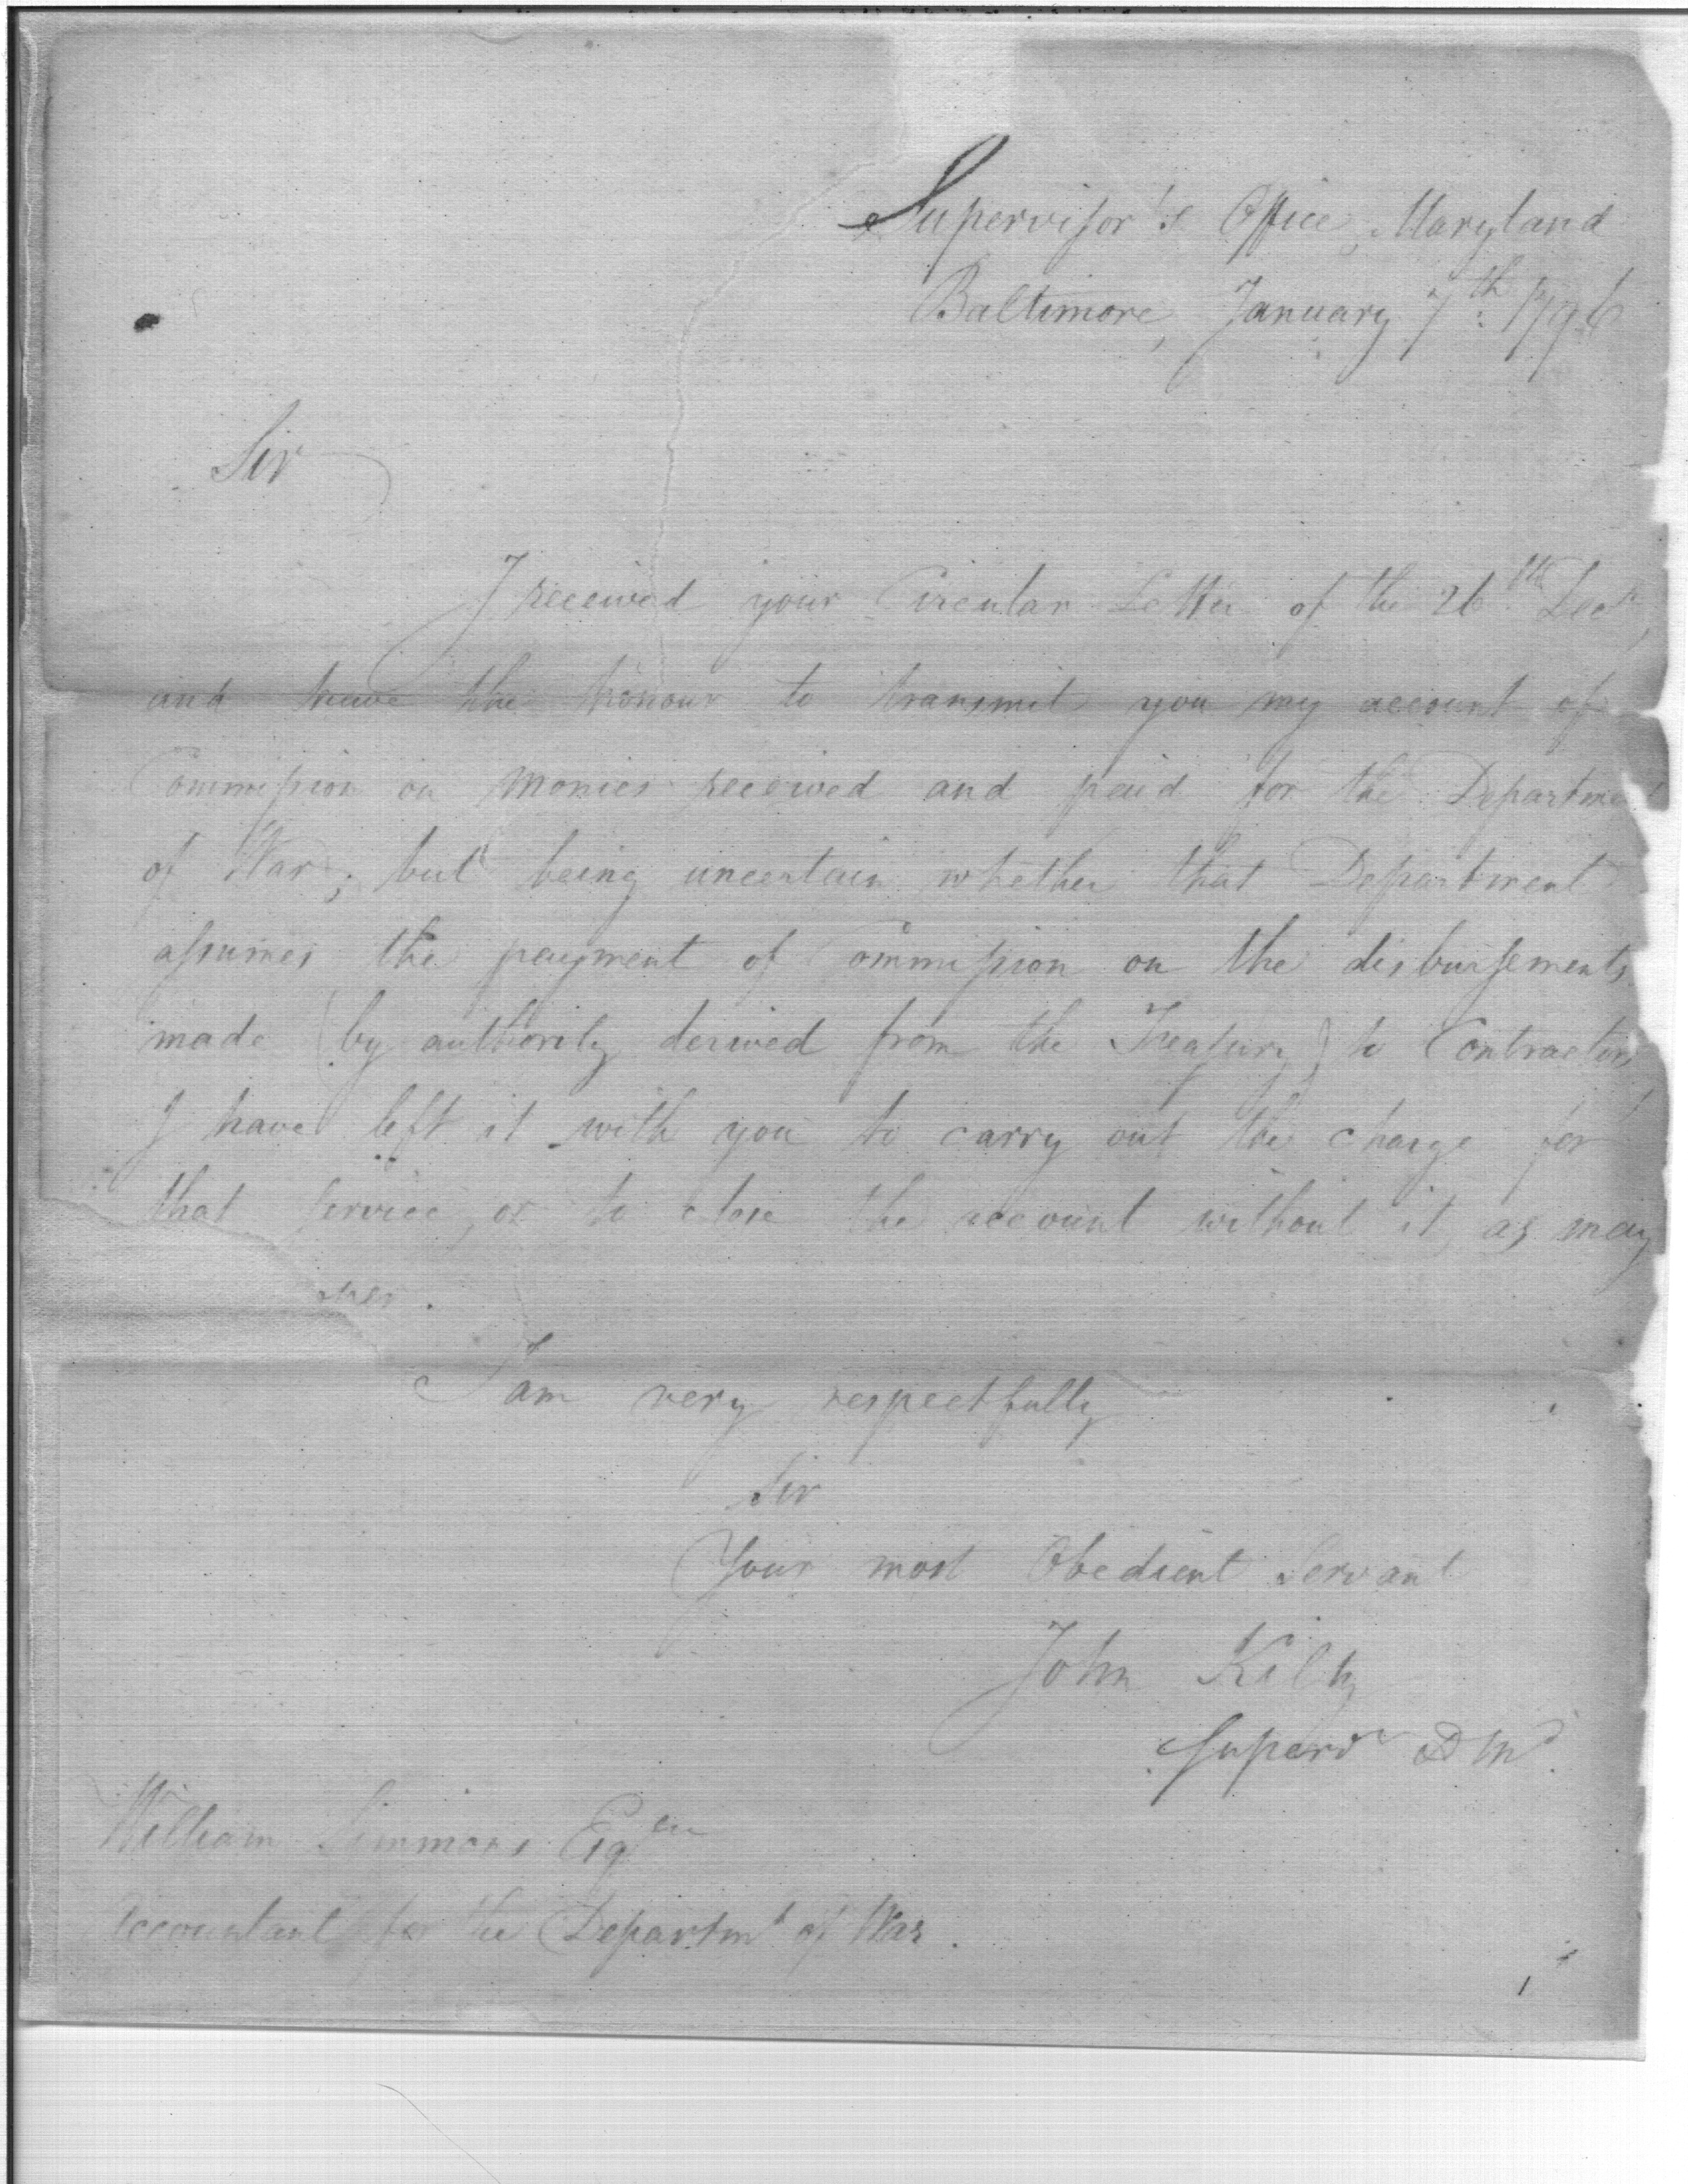 Supervisor's Office, Maryland
Baltimore, January 7th. 1796
Sir
I received your Circular Letter of the 26th Decr,
and have the honour to transmit you my account of
Commission on monies received and paid for the Department
of War; but being uncertain whether that Department
assumes the payment of Commission on the disbursements
made (by authority derived from the Treasury) to Contractors
I have left it with you to carry out the charge for
that service, or to close the account without it, as may
oper.
I am very respectfully
Sir
Your most Obedient Servant
John Kilty
Superv D Md.
William Simmons Esq
Accountant for the Departmt of War.